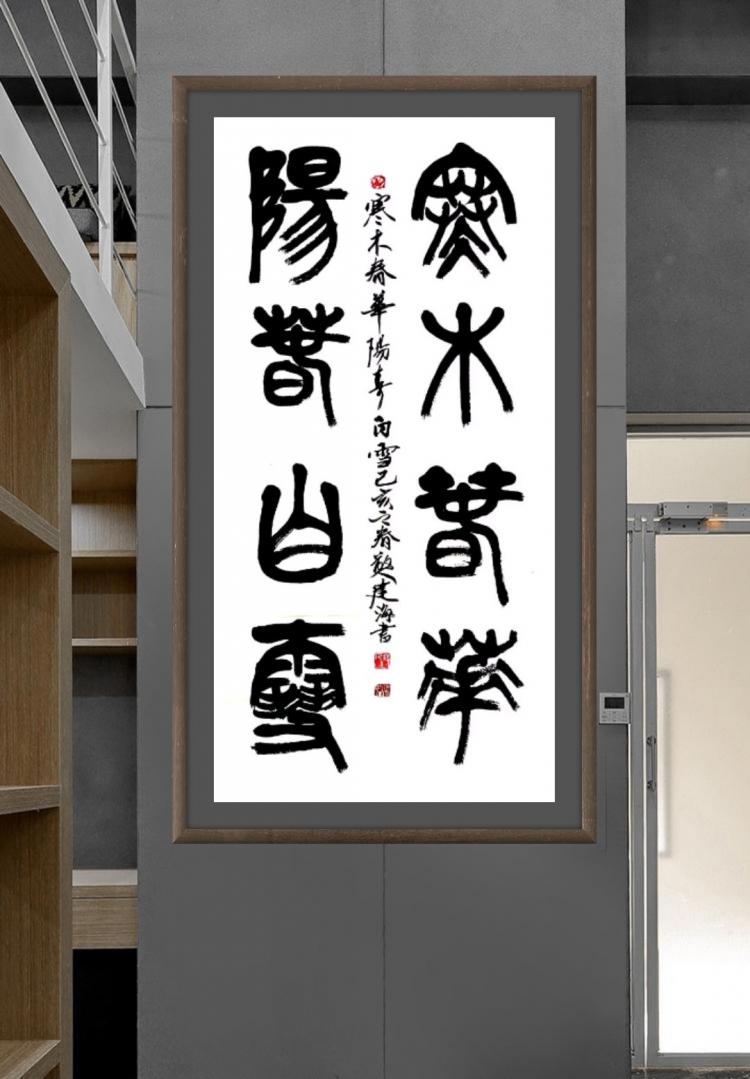 寒木春華
寒木春華陽春白雪己亥之春建海書
陽春白雪